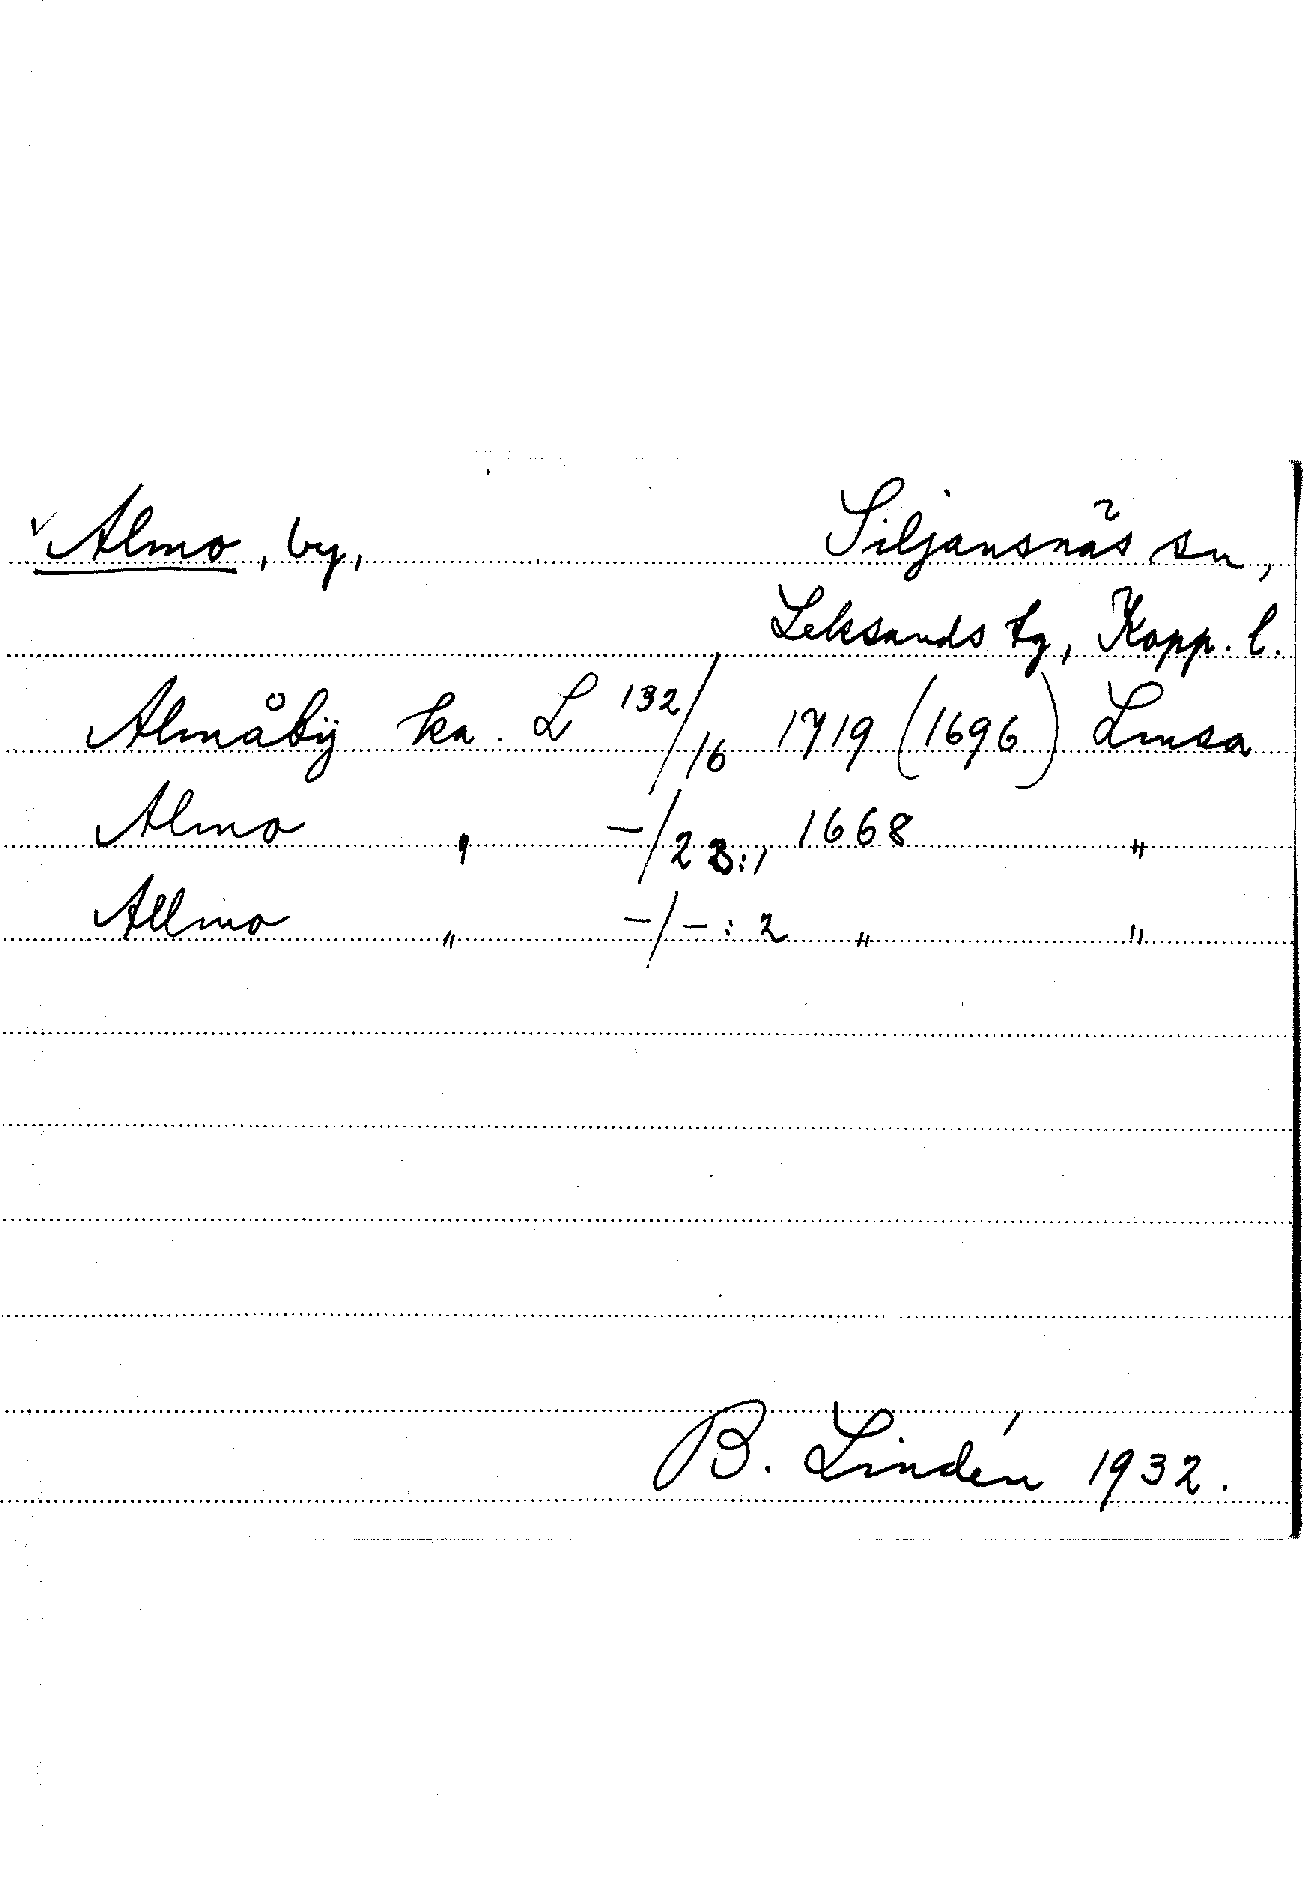 Almo, by, Siljansnäs sn,
Leksands tg, Kopp. l.
Almåbÿ ka. L 132/16 1719 (1696) Lmsa
Almo " -/23:1 1668 "
Allmo " -/-:2 " "
B. Lindén 1932.